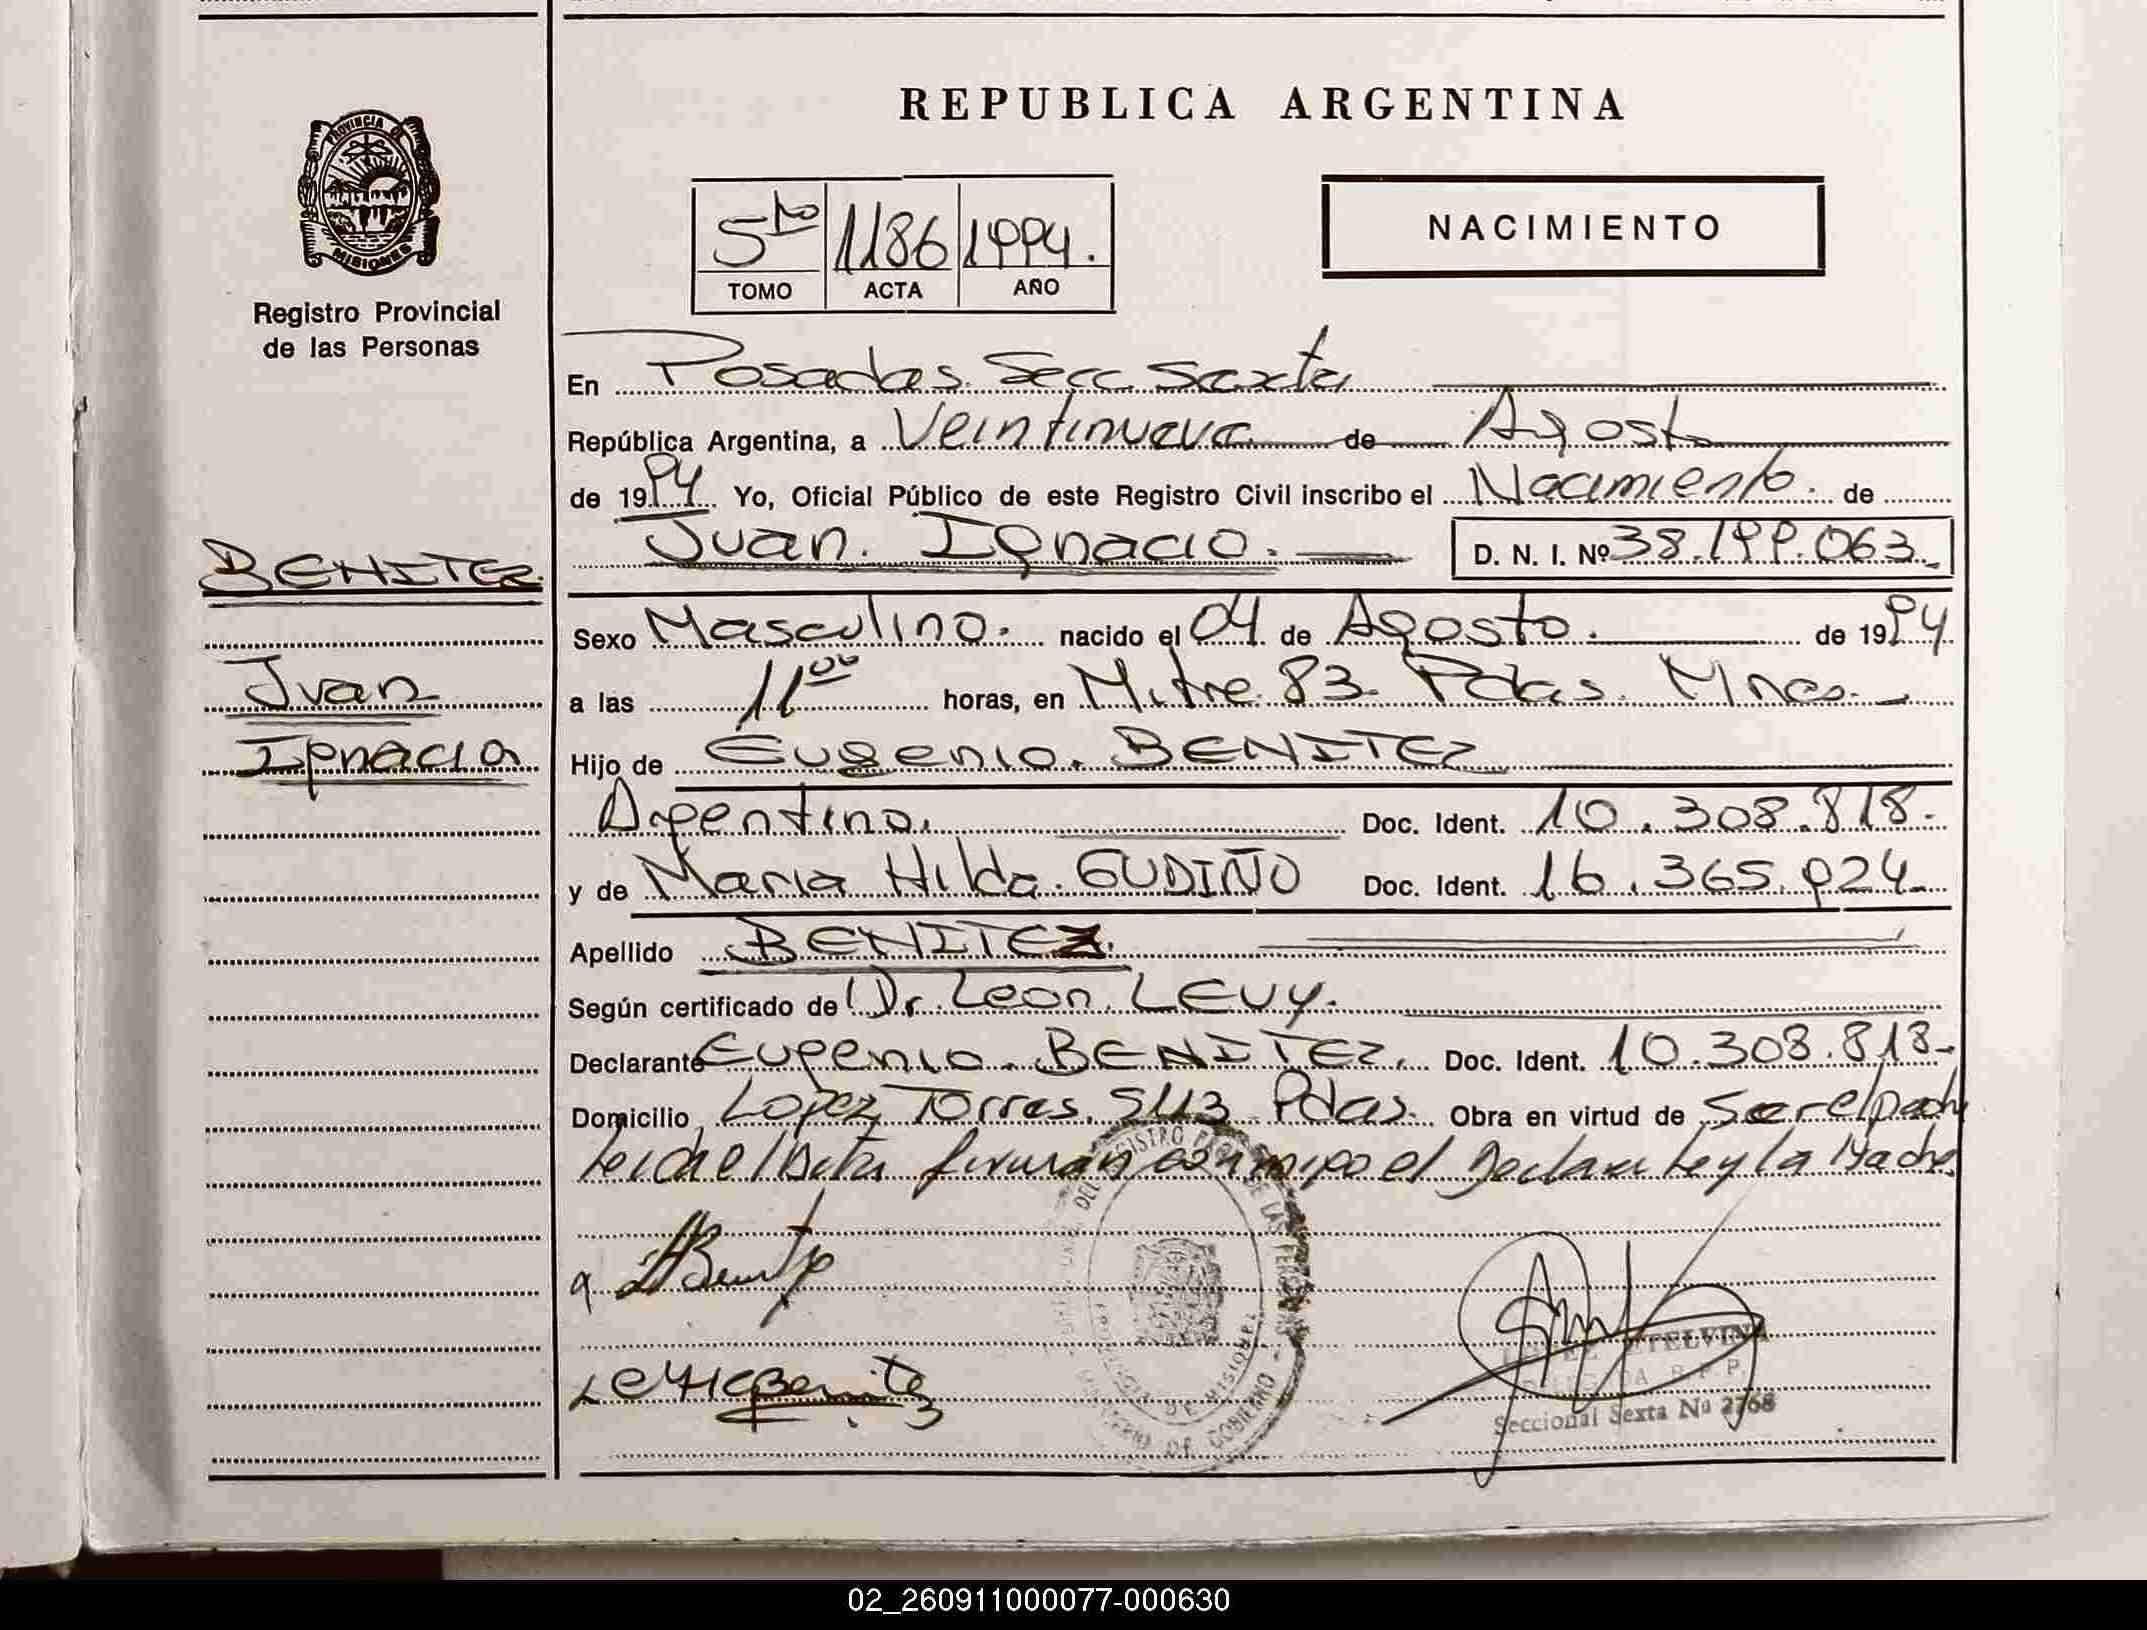 REPUBLICA ARGENTINA
PROVINCIA DE
MISIONES
Registro Provincial
de las Personas
5to 1186 1994.
TOMO ACTA AÑO
NACIMIENTO
En Posadas. Secc. Sexta
República Argentina, a Veintinueve de Agosto
de 1994 Yo, Oficial Público de este Registro Civil inscribo el Nacimiento. de
Juan. Ignacio. D. N. I. Nº 38.199.063.
BENITEZ.
Juan
Ignacio
Sexo Masculino. nacido el 04 de Agosto. de 1994
a las 11 00 horas, en Mitre 83. Pdas. Mnes.
Hijo de Eugenio. BENITEZ
Argentino. Doc. Ident. 10.308.818.
y de Maria Hilda. GUDIÑO Doc. Ident. 16.365.924
Apellido BENITEZ.
Según certificado de Dr. Leon. LEVY.
Declarante Eugenio. BENITEZ. Doc. Ident. 10.308.818
Domicilio Lopez Torres. 5113 Pdas. Obra en virtud de Ser el padre
Leida el Acta firman conmigo el Declarante y la Madre
DEL REGISTRO PROV. DE LAS PERSONAS
DE MISIONES
DE GOBIERNO
ETELVINA
Seccional Sexta Nº 2768
02_260911000077-000630